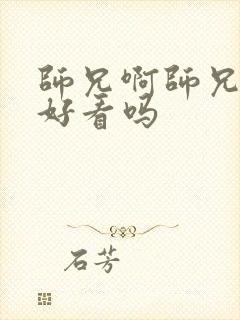 師兄啊師兄
好看吗
石芳